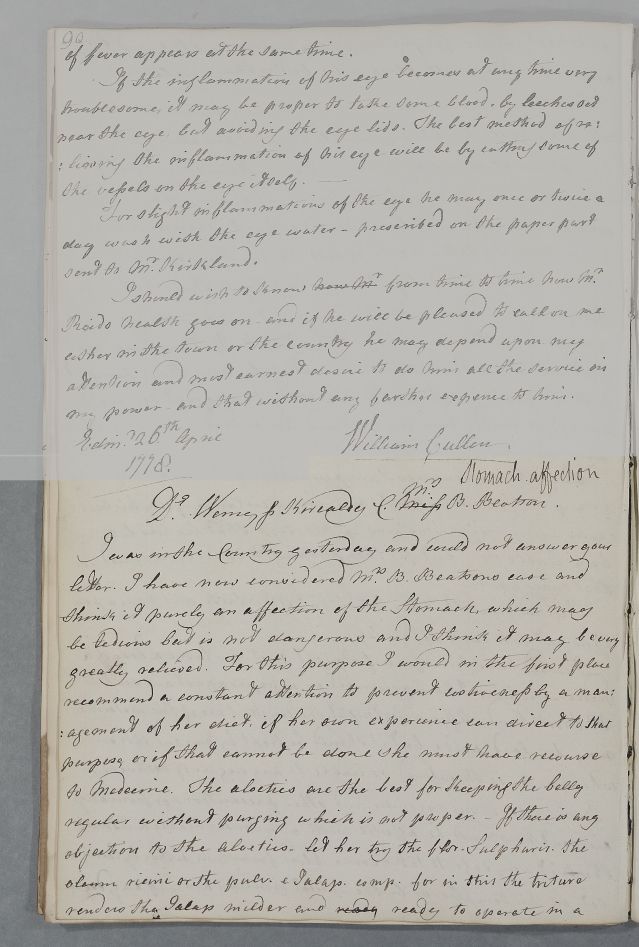 90
of fever appears at the same time.
If the inflammation of his eye becomes at any time very
troublesome, it may be proper to take some blood, by leeches set
near the eye, but avoiding the eye lids. The best method of re:
:lieving the inflammation of his eye will be by cutting some of
the vessels on the eye itself.
For slight inflammations of the eye he may once or twice a
day wash with the eye water - prescribed on the paper part
sent to Mr. Kirkland.
I should wish to know how Mr from time to time how Mr.
health goes on - and if he will be pleased to call on me
either in the town or the country he may depend upon my
attention and most earnest desire to do him all the service in
my power - and that without any farther expence to him.
Edinr. 26th April
1778.
William Cullen
Stomach affection
Dr. Wemyss Kircaldy C. Miss Mrs B. Beatson.
I was in the Country yesterday and could not answer your
letter. I have now considered Mrs B. Beatsons case and
think it purely an affection of the Stomach, which may
be tedious but is not dangerous and I think it may be very
greatly relieved. For this purpose I would in the first place
recommend a constant attention to prevent costiveness by a man:
:agement of her diet, if her own experience can direct to that
purpose, or if that cannot be done she must have recourse
to Medecine. The aloetics are the best for keeping the belly
regular without purging which is not proper. - If there is any
objection to the aloetics let her try the flor. Sulphuris. the
oleum ricini or the pulv. e Jalap. comp. for in this the triture
renders the Jalap milder and ready ready to operate in a